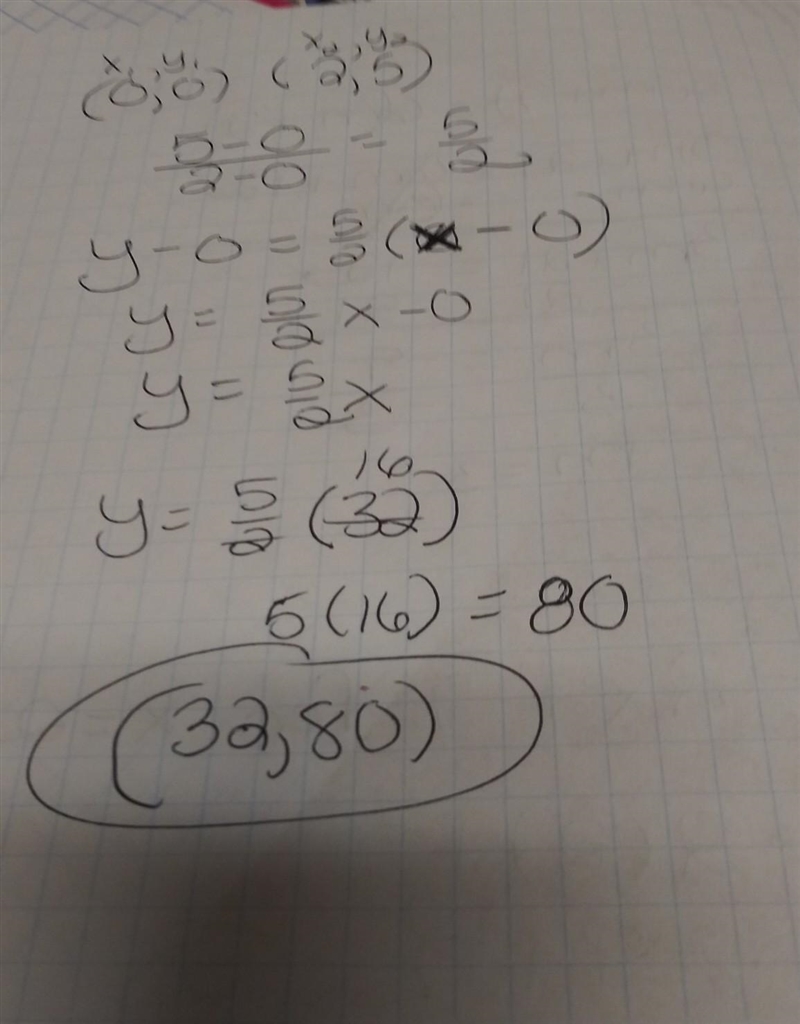 x₁, y₁ x₂, y₂
(0, 0) (2, 5)
5 - 0 / 2 - 0 = 5/2
y - 0 = 5/2 (x - 0)
y = 5/2 x - 0
y = 5/2 x
16
y = 5/2 (32)
5(16) = 80
(32, 80)